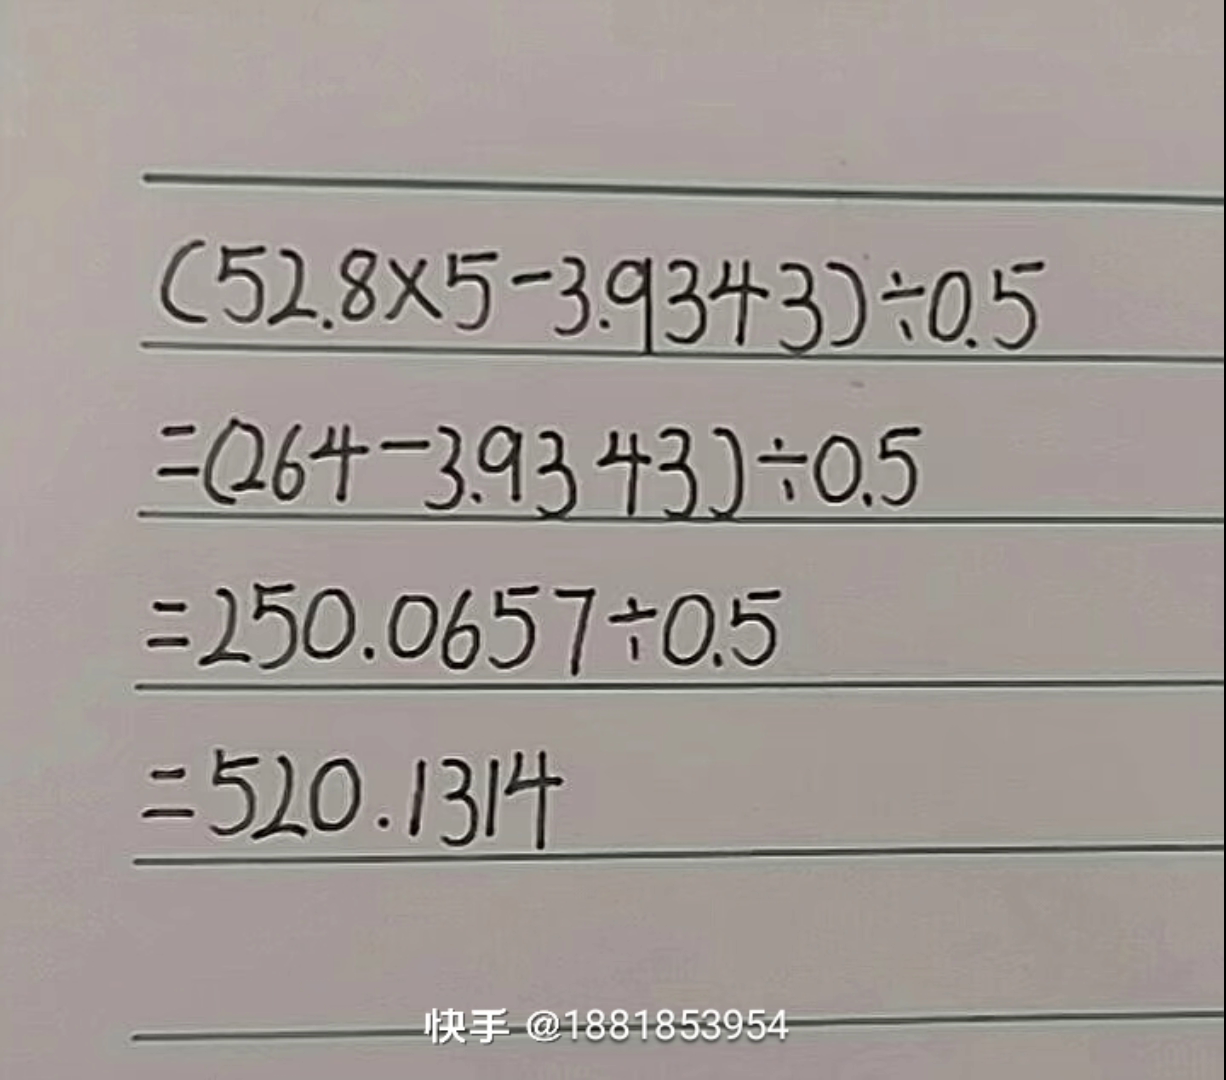 (52.8×5-3.9343)÷0.5
=(264-3.9343)÷0.5
=250.0657÷0.5
=520.1314
快手 @1881853954